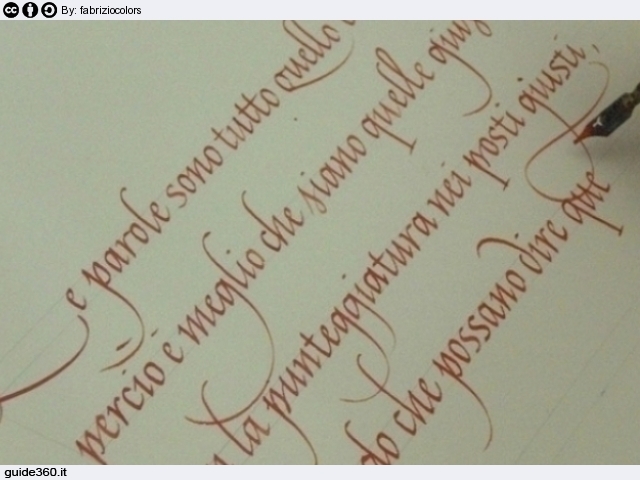 By: fabriziocolors
e parole sono tutto quello
perciò è meglio che siano quelle
la punteggiatura nei posti giusti.
che possano dire
guide360.it